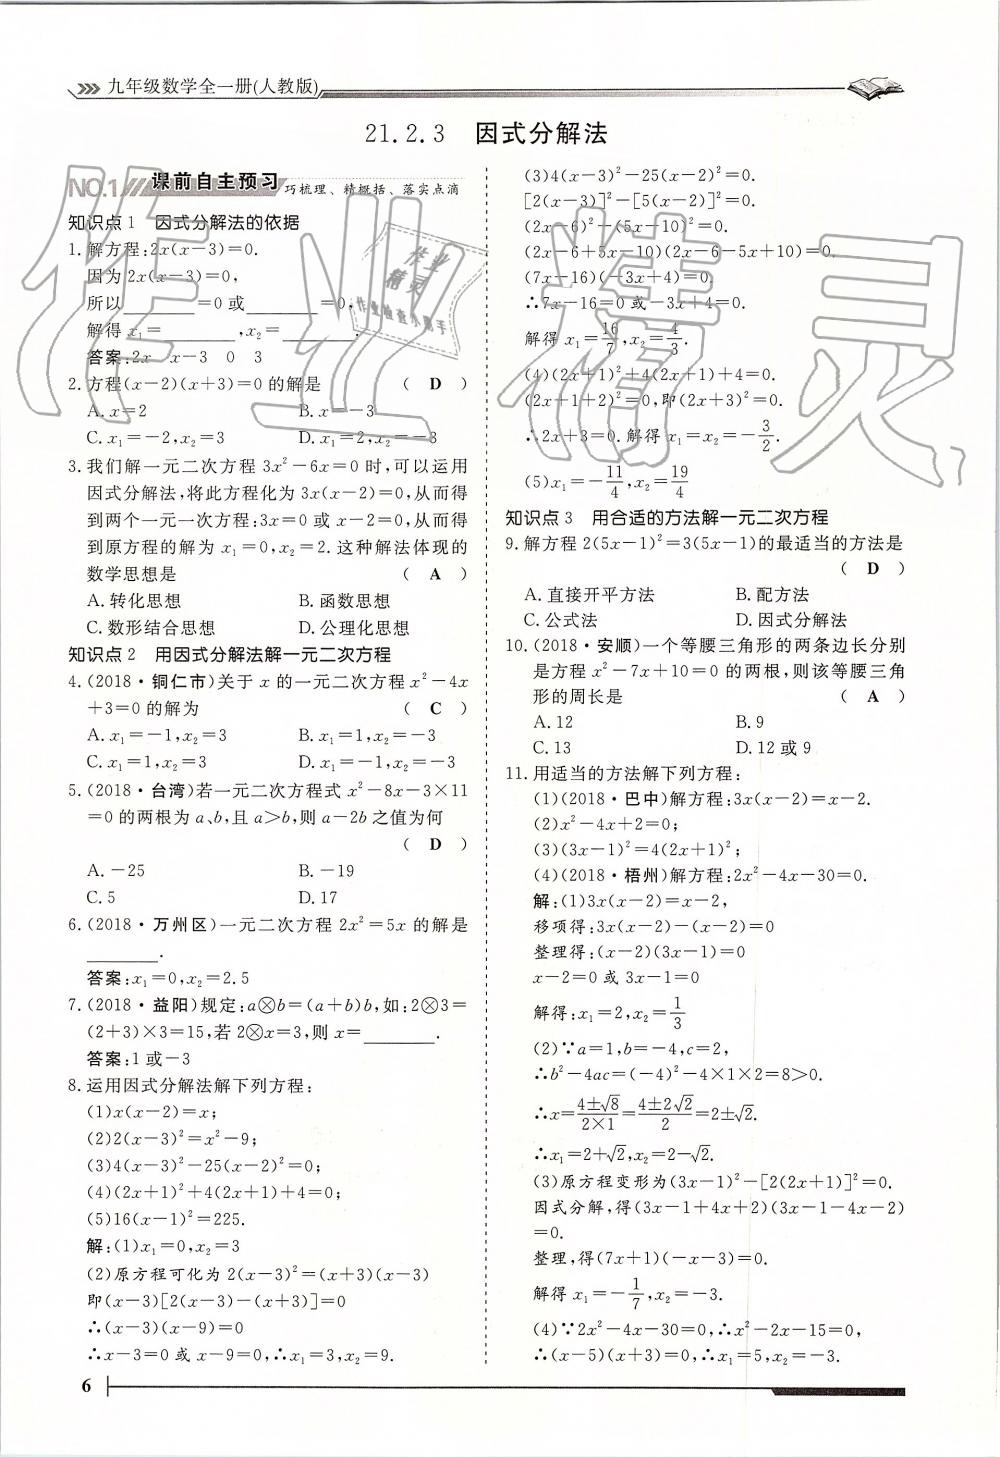 九年级数学全一册(人教版)
21.2.3 因式分解法
NO.1 课前自主预习 巧梳理、精概括、落实点滴
知识点1 因式分解法的依据
1.解方程:2x(x-3)=0.
因为2x(x-3)=0,
所以________=0或________=0,
解得x₁=________,x₂=________.
答案:2x x-3 0 3
2.方程(x-2)(x+3)=0的解是 ( D )
A.x=2 B.x=-3
C.x₁=-2,x₂=3 D.x₁=2,x₂=-3
3.我们解一元二次方程3x²-6x=0时,可以运用
因式分解法,将此方程化为3x(x-2)=0,从而得
到两个一元一次方程:3x=0或x-2=0,从而得
到原方程的解为x₁=0,x₂=2.这种解法体现的
数学思想是 ( A )
A.转化思想 B.函数思想
C.数形结合思想 D.公理化思想
知识点2 用因式分解法解一元二次方程
4.(2018·铜仁市)关于x的一元二次方程x²-4x
+3=0的解为 ( C )
A.x₁=-1,x₂=3 B.x₁=1,x₂=-3
C.x₁=1,x₂=3 D.x₁=-1,x₂=-3
5.(2018·台湾)若一元二次方程式x²-8x-3×11
=0的两根为a、b,且a>b,则a-2b之值为何
( D )
A.-25 B.-19
C.5 D.17
6.(2018·万州区)一元二次方程2x²=5x的解是
________.
答案:x₁=0,x₂=2.5
7.(2018·益阳)规定:a⊗b=(a+b)b,如:2⊗3=
(2+3)×3=15,若2⊗x=3,则x=________.
答案:1或-3
8.运用因式分解法解下列方程:
(1)x(x-2)=x;
(2)2(x-3)²=x²-9;
(3)4(x-3)²-25(x-2)²=0;
(4)(2x+1)²+4(2x+1)+4=0;
(5)16(x-1)²=225.
解:(1)x₁=0,x₂=3
(2)原方程可化为2(x-3)²=(x+3)(x-3)
即(x-3)[2(x-3)-(x+3)]=0
∴(x-3)(x-9)=0
∴x-3=0或x-9=0,∴x₁=3,x₂=9.
(3)4(x-3)²-25(x-2)²=0.
[2(x-3)]²-[5(x-2)]²=0.
(2x-6)²-(5x-10)²=0.
(2x-6+5x-10)(2x-6-5x+10)=0.
(7x-16)(-3x+4)=0.
∴7x-16=0或-3x+4=0.
解得x₁=16/7,x₂=4/3.
(4)(2x+1)²+4(2x+1)+4=0.
(2x+1+2)²=0,即(2x+3)²=0.
∴2x+3=0.解得x₁=x₂=-3/2.
(5)x₁=-11/4,x₂=19/4
知识点3 用合适的方法解一元二次方程
9.解方程2(5x-1)²=3(5x-1)的最适当的方法是
( D )
A.直接开平方法 B.配方法
C.公式法 D.因式分解法
10.(2018·安顺)一个等腰三角形的两条边长分别
是方程x²-7x+10=0的两根,则该等腰三角
形的周长是 ( A )
A.12 B.9
C.13 D.12或9
11.用适当的方法解下列方程:
(1)(2018·巴中)解方程:3x(x-2)=x-2.
(2)x²-4x+2=0;
(3)(3x-1)²=4(2x+1)²;
(4)(2018·梧州)解方程:2x²-4x-30=0.
解:(1)3x(x-2)=x-2,
移项得:3x(x-2)-(x-2)=0
整理得:(x-2)(3x-1)=0
x-2=0或3x-1=0
解得:x₁=2,x₂=1/3
(2)∵a=1,b=-4,c=2,
∴b²-4ac=(-4)²-4×1×2=8>0.
∴x=(4±√8)/(2×1)=(4±2√2)/2=2±√2.
∴x₁=2+√2,x₂=2-√2.
(3)原方程变形为(3x-1)²-[2(2x+1)]²=0.
因式分解,得(3x-1+4x+2)(3x-1-4x-2)
=0.
整理,得(7x+1)(-x-3)=0.
解得x₁=-1/7,x₂=-3.
(4)∵2x²-4x-30=0,∴x²-2x-15=0,
∴(x-5)(x+3)=0,∴x₁=5,x₂=-3.
6
作业精灵
作业
精灵
作业检查小帮手